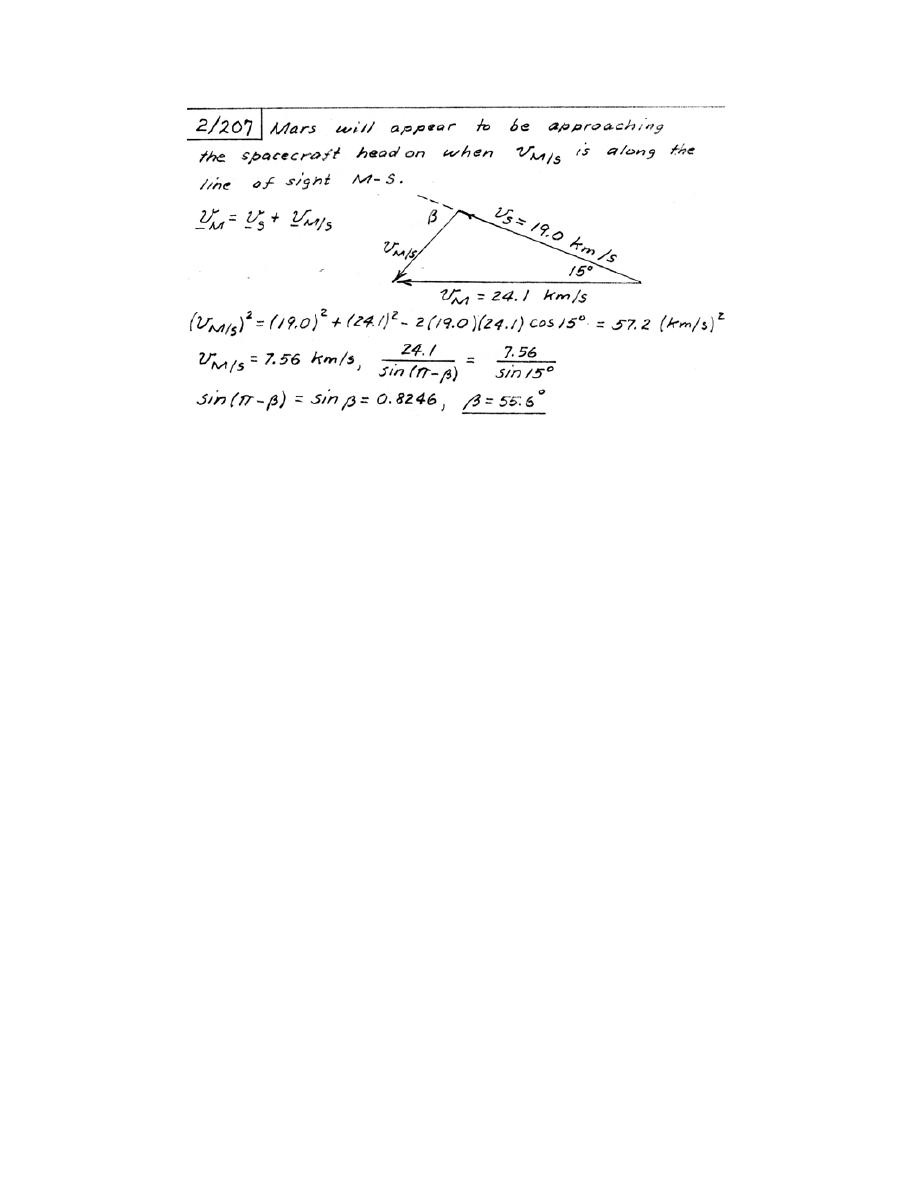 2/207 Mars will appear to be approaching
the spacecraft head on when v_M/S is along the
line of sight M-S.
v_M = v_S + v_M/S
β
v_S = 19.0 km/s
v_M/S
15°
v_M = 24.1 km/s
(v_M/S)² = (19.0)² + (24.1)² - 2(19.0)(24.1) cos 15° = 57.2 (km/s)²
v_M/S = 7.56 km/s, 24.1 / sin(π-β) = 7.56 / sin 15°
sin(π-β) = sin β = 0.8246, β = 55.6°